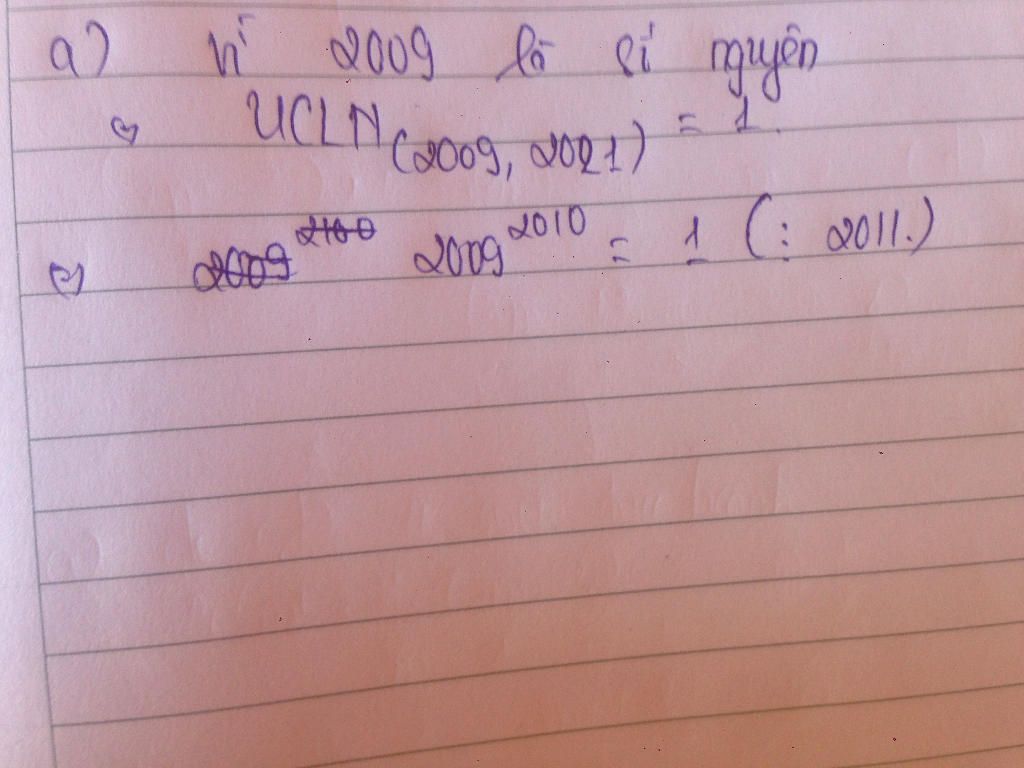 a) Vì 2009 là số nguyên
UCLN(2009, 2021) = 1.
2009^2100 2009^2010 = 1 (: 2011.)